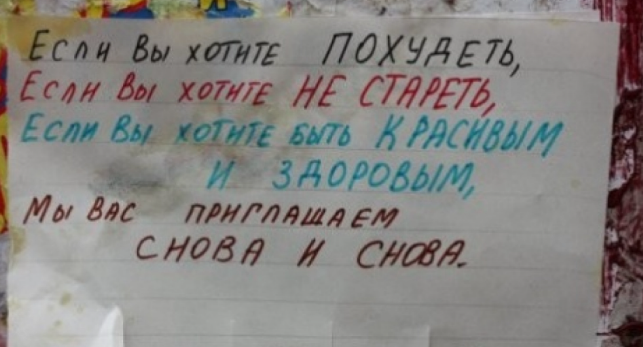 Если Вы хотите ПОХУДЕТЬ,
Если Вы хотите НЕ СТАРЕТЬ,
Если Вы хотите быть КРАСИВЫМ
И ЗДОРОВЫМ,
Мы ВАС ПРИГЛАШАЕМ
СНОВА И СНОВА.